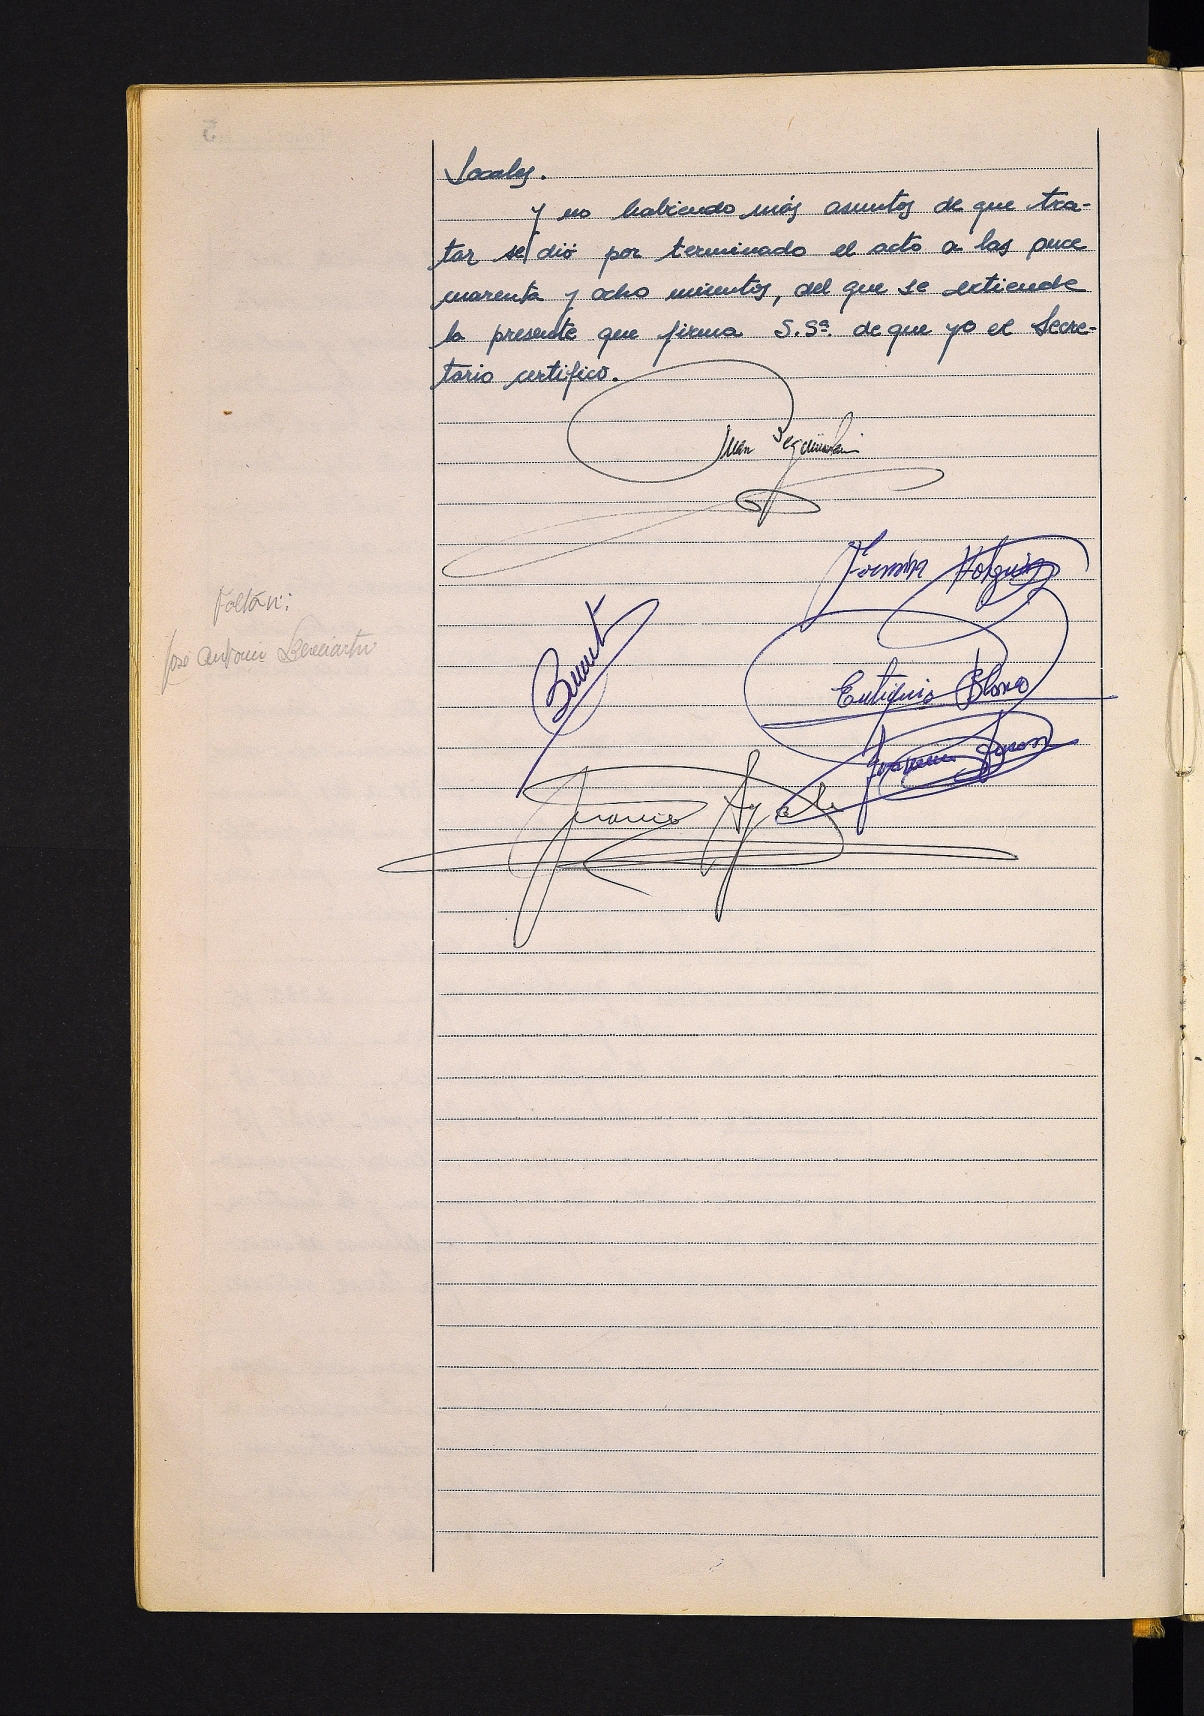 Locales.
Y no habiendo más asuntos de que tra-
tar se dió por terminado el acto a las once
cuarenta y ocho minutos, del que se extiende
la presente que firma S.Sª. de que yo el Secre-
tario certifico.
Juan
Fermín Holguin
Faltan:
José Antonio
Benit
Eutiquio Blanco
Ayala